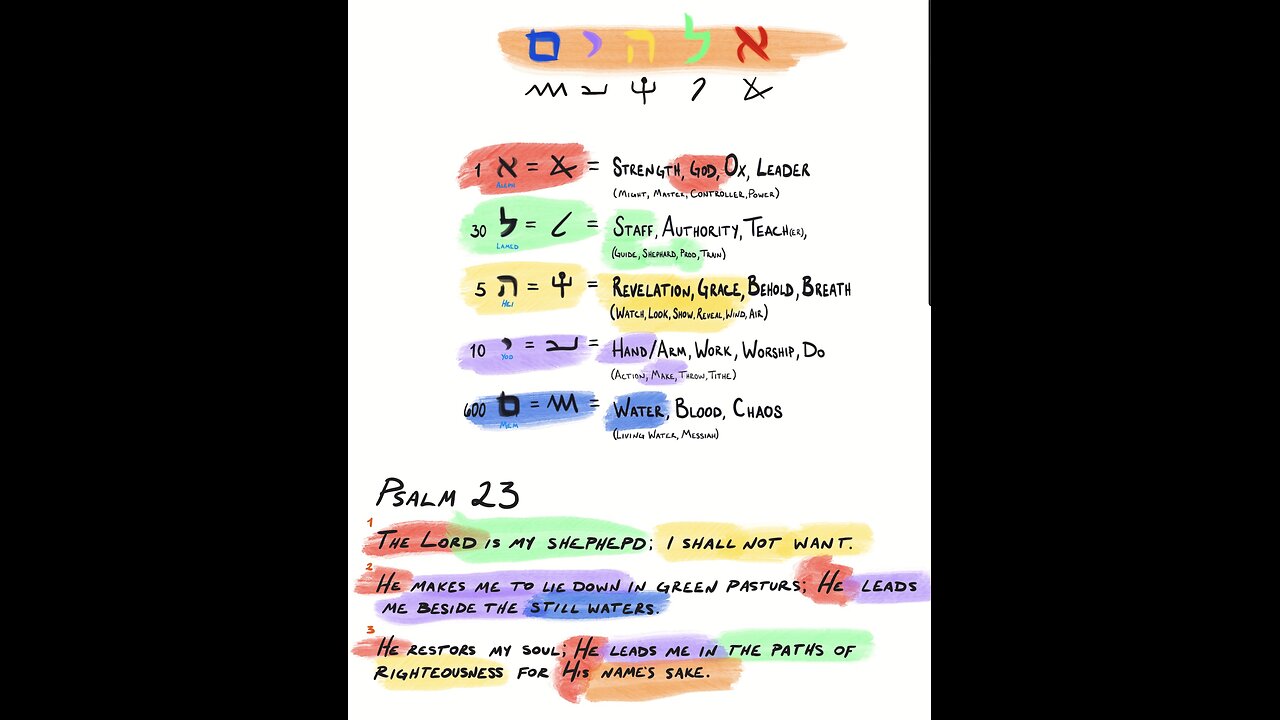 אלהים
1 א = = STRENGTH, GOD, OX, LEADER
ALEPH
(MIGHT, MASTER, CONTROLLER, POWER)
30 ל = = STAFF, AUTHORITY, TEACH(ER),
LAMED
(GUIDE, SHEPHARD, PROD, TRAIN)
5 ה = = REVELATION, GRACE, BEHOLD, BREATH
HEI
(WATCH, LOOK, SHOW, REVEAL, WIND, AIR)
10 י = = HAND/ARM, WORK, WORSHIP, DO
YOD
(ACTION, MAKE, THROW, TITHE)
600 ם = = WATER, BLOOD, CHAOS
MEM
(LIVING WATER, MESSIAH)
PSALM 23
1
THE LORD IS MY SHEPHEPD; I SHALL NOT WANT.
2
HE MAKES ME TO LIE DOWN IN GREEN PASTURS; HE LEADS
ME BESIDE THE STILL WATERS.
3
HE RESTORS MY SOUL; HE LEADS ME IN THE PATHS OF
RIGHTEOUSNESS FOR HIS NAME'S SAKE.